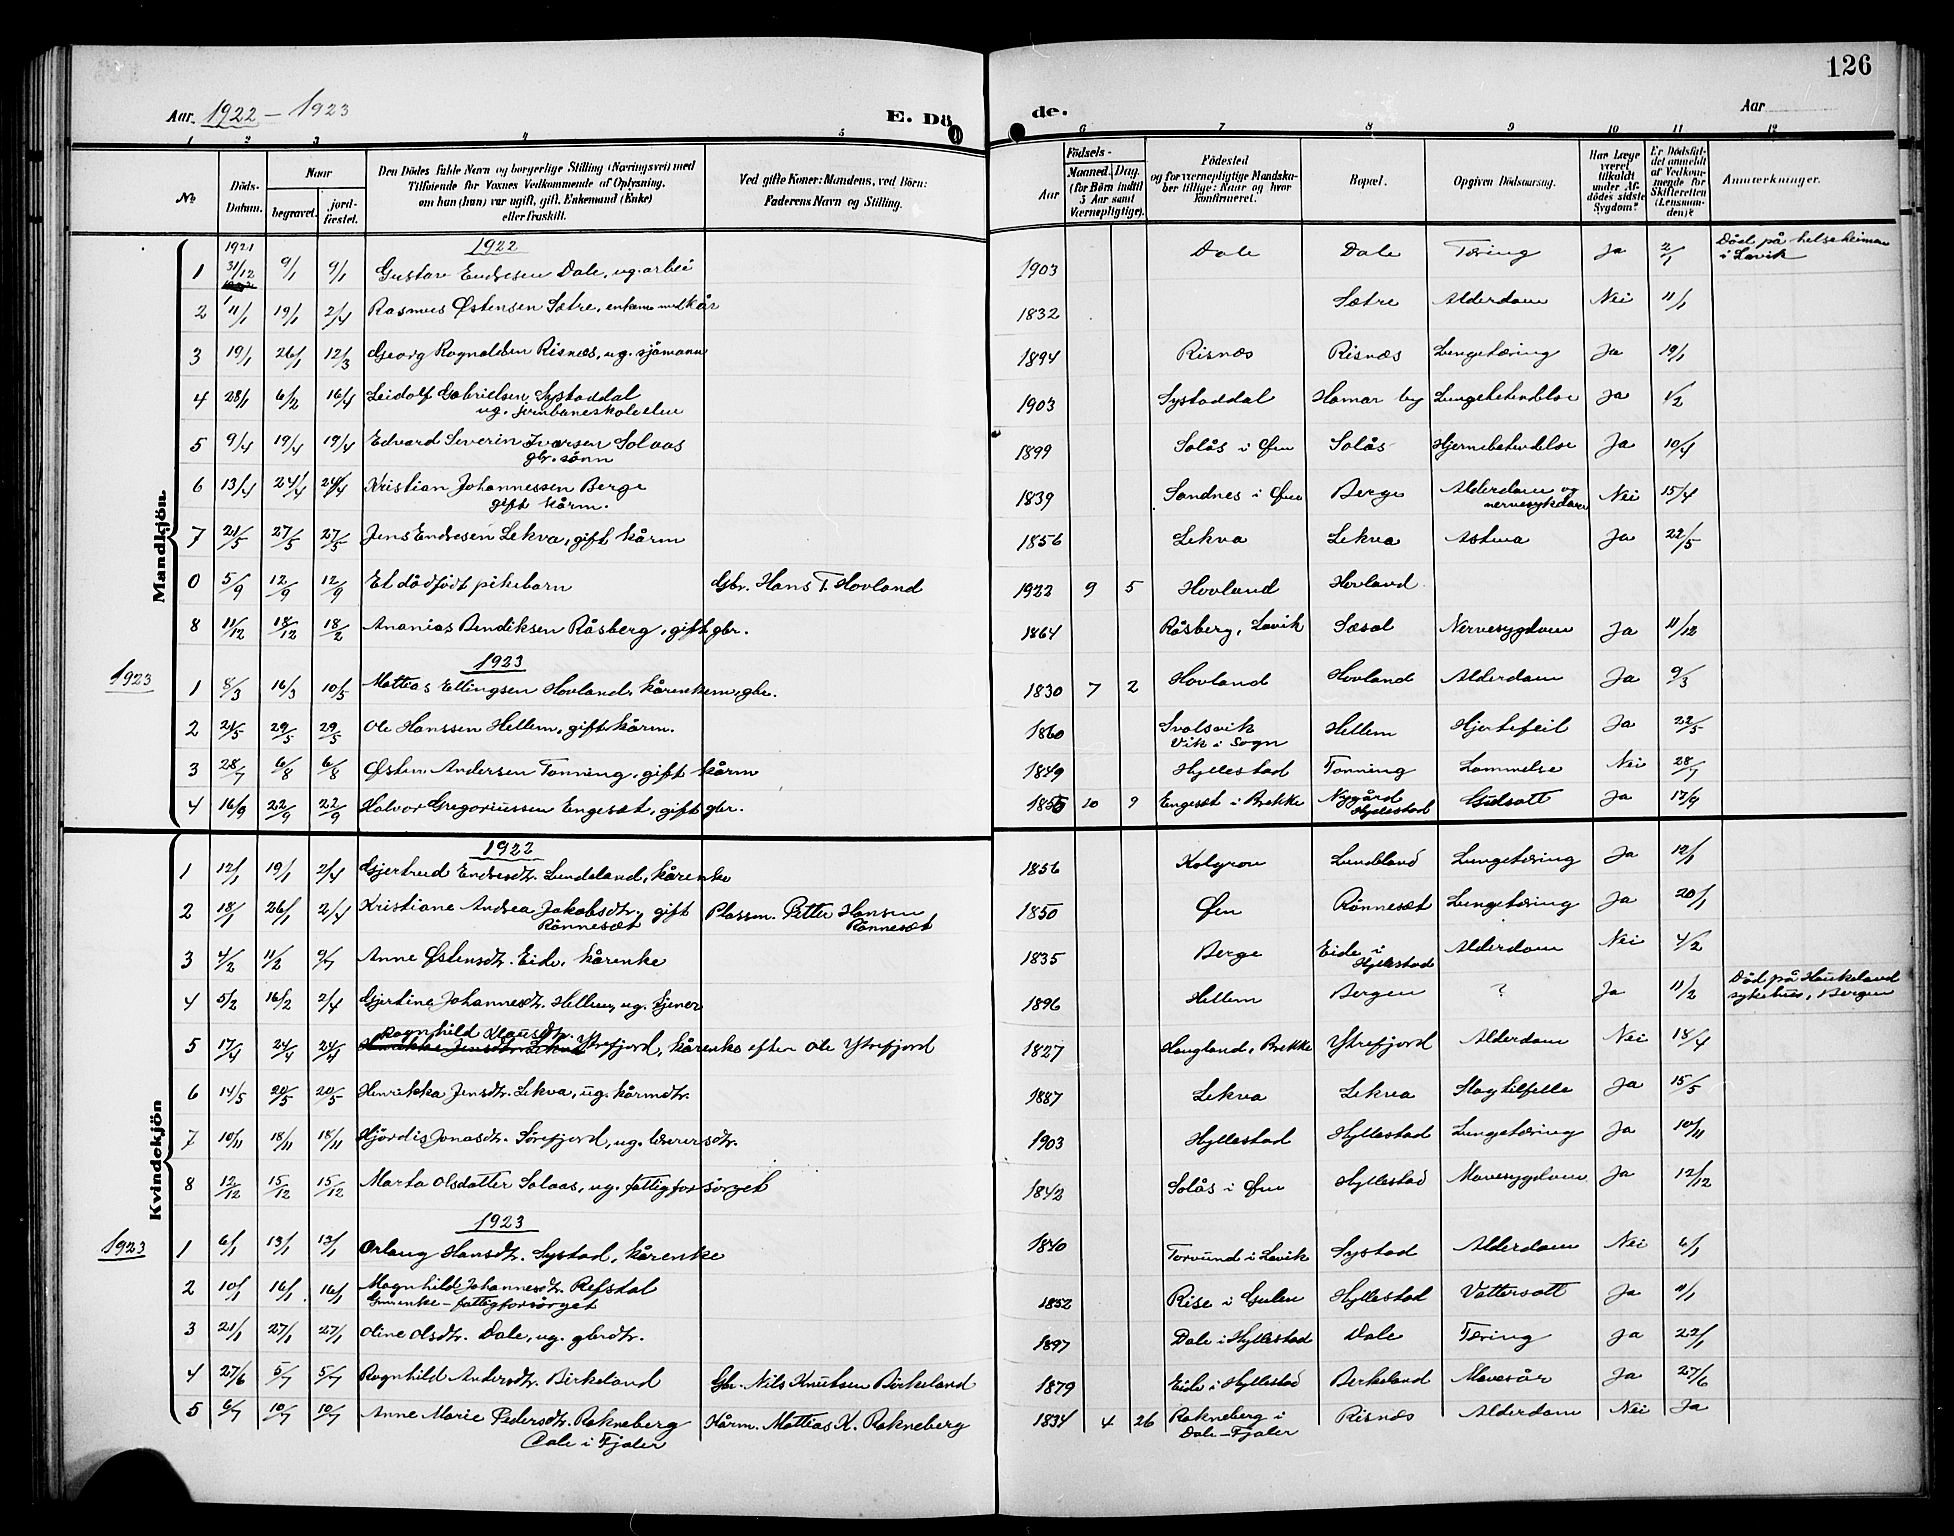 126
Aar 1922 – 1923
E. Dö
de.
Aar
1 2 3 4 5 6 7 8 9 10 11 12
No
Döds-Datum.
Naar
begravet.
jord-fæstet.
Den Dödes fulde Navn og borgerlige Stilling (Næringsvei) med
Tilföiende for Voxnes Vedkommende af Oplysning,
om han (hun) var ugift, gift, Enkemand (Enke)
eller fraskilt.
Ved gifte Koner: Mandens, ved Börn:
Faderens Navn og Stilling.
Födsels-
Aar
Maaned. Dag.
(for Börn indtil
5 Aar samt
Værnepligtige).
Födested
og for værnepligtige Mandska-
ber tillige: Naar og hvor
konfirmeret.
Bopæl.
Opgiven Dödsaarsag.
Har Læge
været
tilkaldt
under Af-
dödes sidste
Sygdom?
Er Dödsfal-
det anmeldt
af Vedkom-
mende for
Skifteretten
(Lensman-
den)?
Anmærkninger.
Mandkjön
1922
1 1921 31/12 9/1 9/1 Gustav Endresen Dale, ug. arbei 1903 Dale Dale Tæring Ja 2/1 Död på helseheimen i Lavik
2 11/1 19/1 2/4 Rasmus Østensen Sætre, enkem. med kår 1832 Sætre Alderdom Nei 11/1
3 19/1 26/1 12/3 Georg Ragnaldsen Risnæs, ug. sjömann 1894 Risnæs Risnæs Lungetæring Ja 19/1
4 28/1 6/2 16/4 Leidolf Gabrielsen Systaddal
ug. jernbaneskoleelev 1903 Systaddal Hamar by Lungebetendelse Ja 1/2
5 9/4 19/4 19/4 Edvard Severin Iversen Solaas
gbr. sönn 1899 Solås i Øen Solås Hjernebetendelse Ja 10/4
6 13/4 24/4 24/4 Kristian Johannessen Berge
gift kårm. 1839 Sandnes i Øen Berge Alderdom og
nervesykdom Nei 15/4
7 21/5 27/5 27/5 Jens Endresen Lekva, gift kårm 1856 Lekva Lekva Astma Ja 22/5
0 5/9 12/9 12/9 Et dödfödt pikebarn Gbr. Hans T. Hovland 1922 9 5 Hovland Hovland
8 11/12 18/12 18/2 Ananias Bendiksen Råsberg, gift gbr. 1864 Råsberg, Lavik Sæsol Nervesygdom Ja 11/12
1923
1923
1 8/3 16/3 10/5 Mattias Ellingsen Hovland, kårenkem. gbr. 1830 7 2 Hovland Hovland Alderdom Ja 9/3
2 21/5 29/5 29/5 Ole Hanssen Hellem, gift kårm. 1860 Svalsvik
Vik i Sogn Hellem Hjertefeil Ja 22/5
3 28/7 6/8 6/8 Østen Andersen Tonning, gift kårm 1849 Hyllestad Tonning Lammelse Nei 28/7
4 16/9 22/9 22/9 Halvor Gregoriussen Engesæt, gift gbr. 1855 10 9 Engesæt i Brekke Nygård
Hyllestad Gulsott Ja 17/9
Kvindekjön
1922
1 12/1 19/1 2/4 Gjertrud Endresdtr. Lundeland, kårenke 1856 Kolgrov Lundeland Lungetæring Ja 12/1
2 18/1 26/1 2/4 Kristiane Andrea Jakobsdtr., gift
Rönnesæt Plassm. Petter Hansen
Rönnesæt 1850 Øen Rönnesæt Lungetæring Ja 20/1
3 4/2 11/2 9/7 Anne Østensdtr. Eide, kårenke 1835 Berge Eide i
Hyllestad Alderdom Nei 4/2
4 5/2 16/2 2/4 Gjertine Johannesdtr. Hellem, ug. tjener 1896 Hellem Bergen ? Ja 11/2 Död på Haukeland
sykehus, Bergen
5 17/4 24/4 24/4 Ragnhild Klausdtr.
Henrikke Jensdtr. Lekva Ytrefjord, kårenke efter Ole Ytrefjord 1827 Haugland, Brekke Ytrefjord Alderdom Nei 18/4
6 14/5 20/5 20/5 Henrikka Jensdtr. Lekva, ug. kårmdtr. 1887 Lekva Lekva Slagtilfelle Ja 15/5
7 10/11 18/11 18/11 Hjördis Jonasdtr. Sörefjord, ug. lærersdtr. 1903 Hyllestad Hyllestad Lungetæring Ja 10/11
8 12/12 15/12 15/12 Marta Olsdatter Solaas, ug. fattigforsörget 1842 Solås i Øen Hyllestad Mavesygdom Ja 12/12
1923
1923
1 6/1 13/1 13/1 Orlaug Hansdtr. Systad, kårenke 1840 Torvund i Lavik Systad Alderdom Nei 6/1
2 10/1 16/1 16/1 Magnhild Johannesdtr. Refstal
Gmenke – fattigforsörget 1852 Rise i Gulen Hyllestad Vattersott Ja 11/1
3 21/1 27/1 27/1 Oline Olsdtr. Dale, ug. gbrdtr. 1897 Dale i Hyllestad Dale Tæring Ja 22/1
4 27/6 5/7 5/7 Ragnhild Andersdtr. Birkeland Gbr. Nils Knutsen Birkeland 1879 Eide i Hyllestad Berkeland Mavesår Ja 27/6
5 6/7 10/7 10/7 Anne Marie Pedersdtr. Rakneberg
Dale i Fjaler Kårm. Mattias K. Rakneberg 1834 4 26 Rakneberg i
Dale – Fjaler Risnæs Alderdom Nei Ja